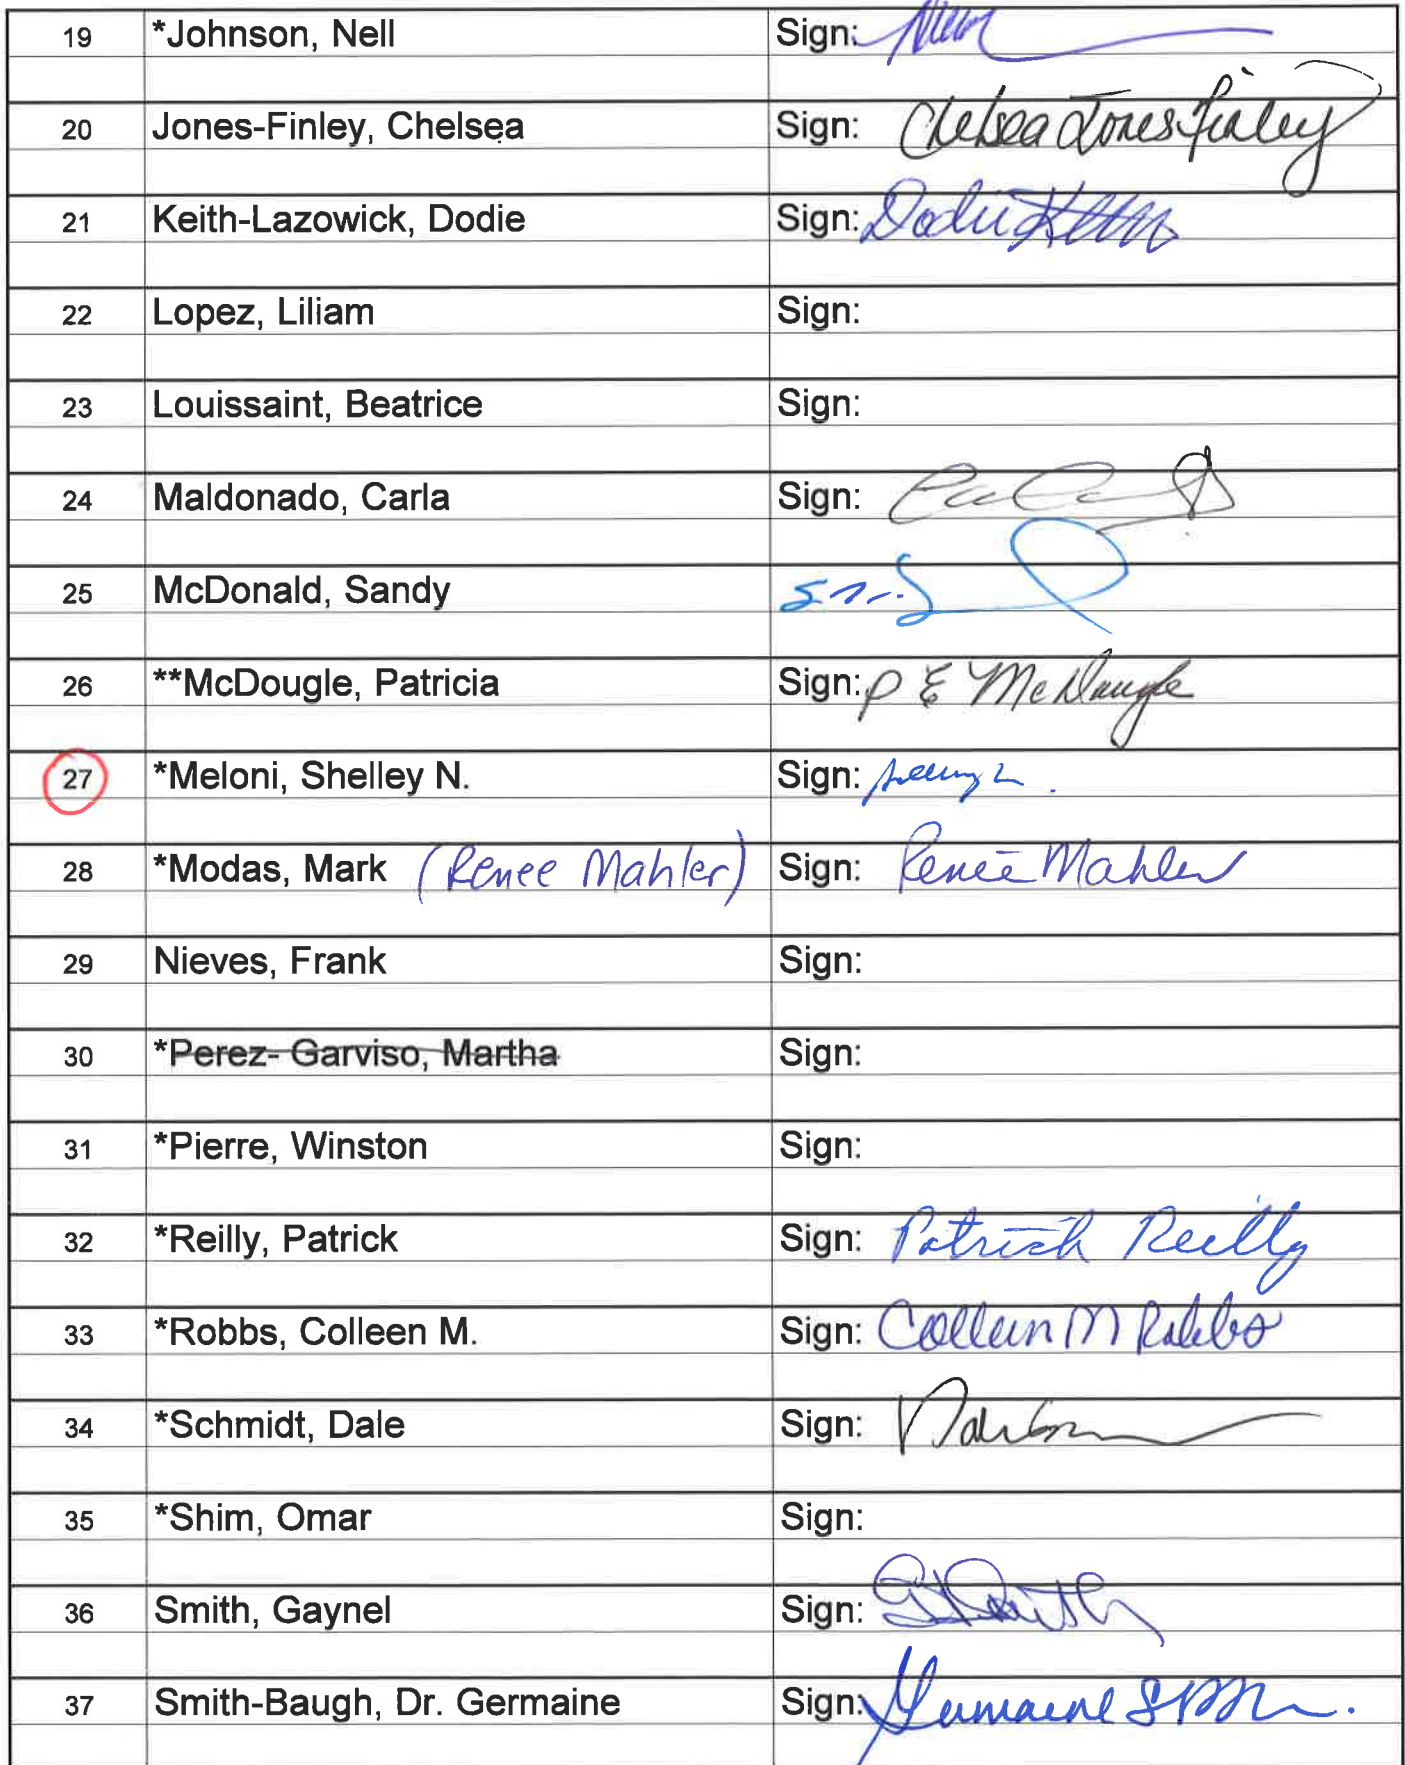 19 *Johnson, Nell Sign:
20 Jones-Finley, Chelsea Sign: Chelsea Jones-Finley
21 Keith-Lazowick, Dodie Sign: Dodie
22 Lopez, Liliam Sign:
23 Louissaint, Beatrice Sign:
24 Maldonado, Carla Sign:
25 McDonald, Sandy
26 **McDougle, Patricia Sign: P E McDougle
27 *Meloni, Shelley N. Sign:
28 *Modas, Mark (Renee Mahler) Sign: Renee Mahler
29 Nieves, Frank Sign:
30 *Perez- Garviso, Martha Sign:
31 *Pierre, Winston Sign:
32 *Reilly, Patrick Sign: Patrick Reilly
33 *Robbs, Colleen M. Sign: Colleen M Robbs
34 *Schmidt, Dale Sign:
35 *Shim, Omar Sign:
36 Smith, Gaynel Sign:
37 Smith-Baugh, Dr. Germaine Sign: Germaine